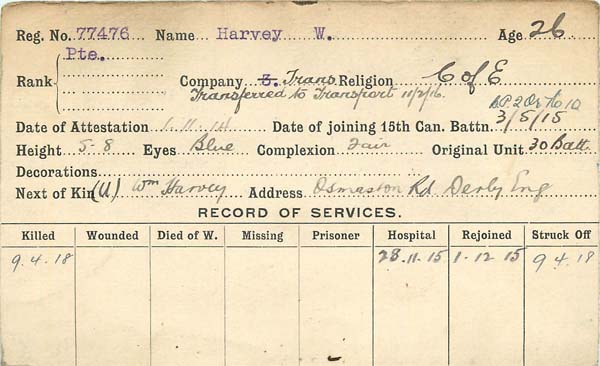 Reg. No. 77476 Name Harvey W. Age 26
Pte.
Rank Company 3. Trans Religion C of E
Transferred to Transport 11/2/16.
D.P. 2 Or No 10
Date of Attestation 1.11.14 Date of joining 15th Can. Battn. 3/5/15
Height 5-8 Eyes Blue Complexion Fair Original Unit 30 Batt.
Decorations
Next of Kin (U) Wm Harvey Address Osmaston Rd Derby Eng
RECORD OF SERVICES.
Killed Wounded Died of W. Missing Prisoner Hospital Rejoined Struck Off
9.4.18 28.11.15 1.12.15 9 4.18